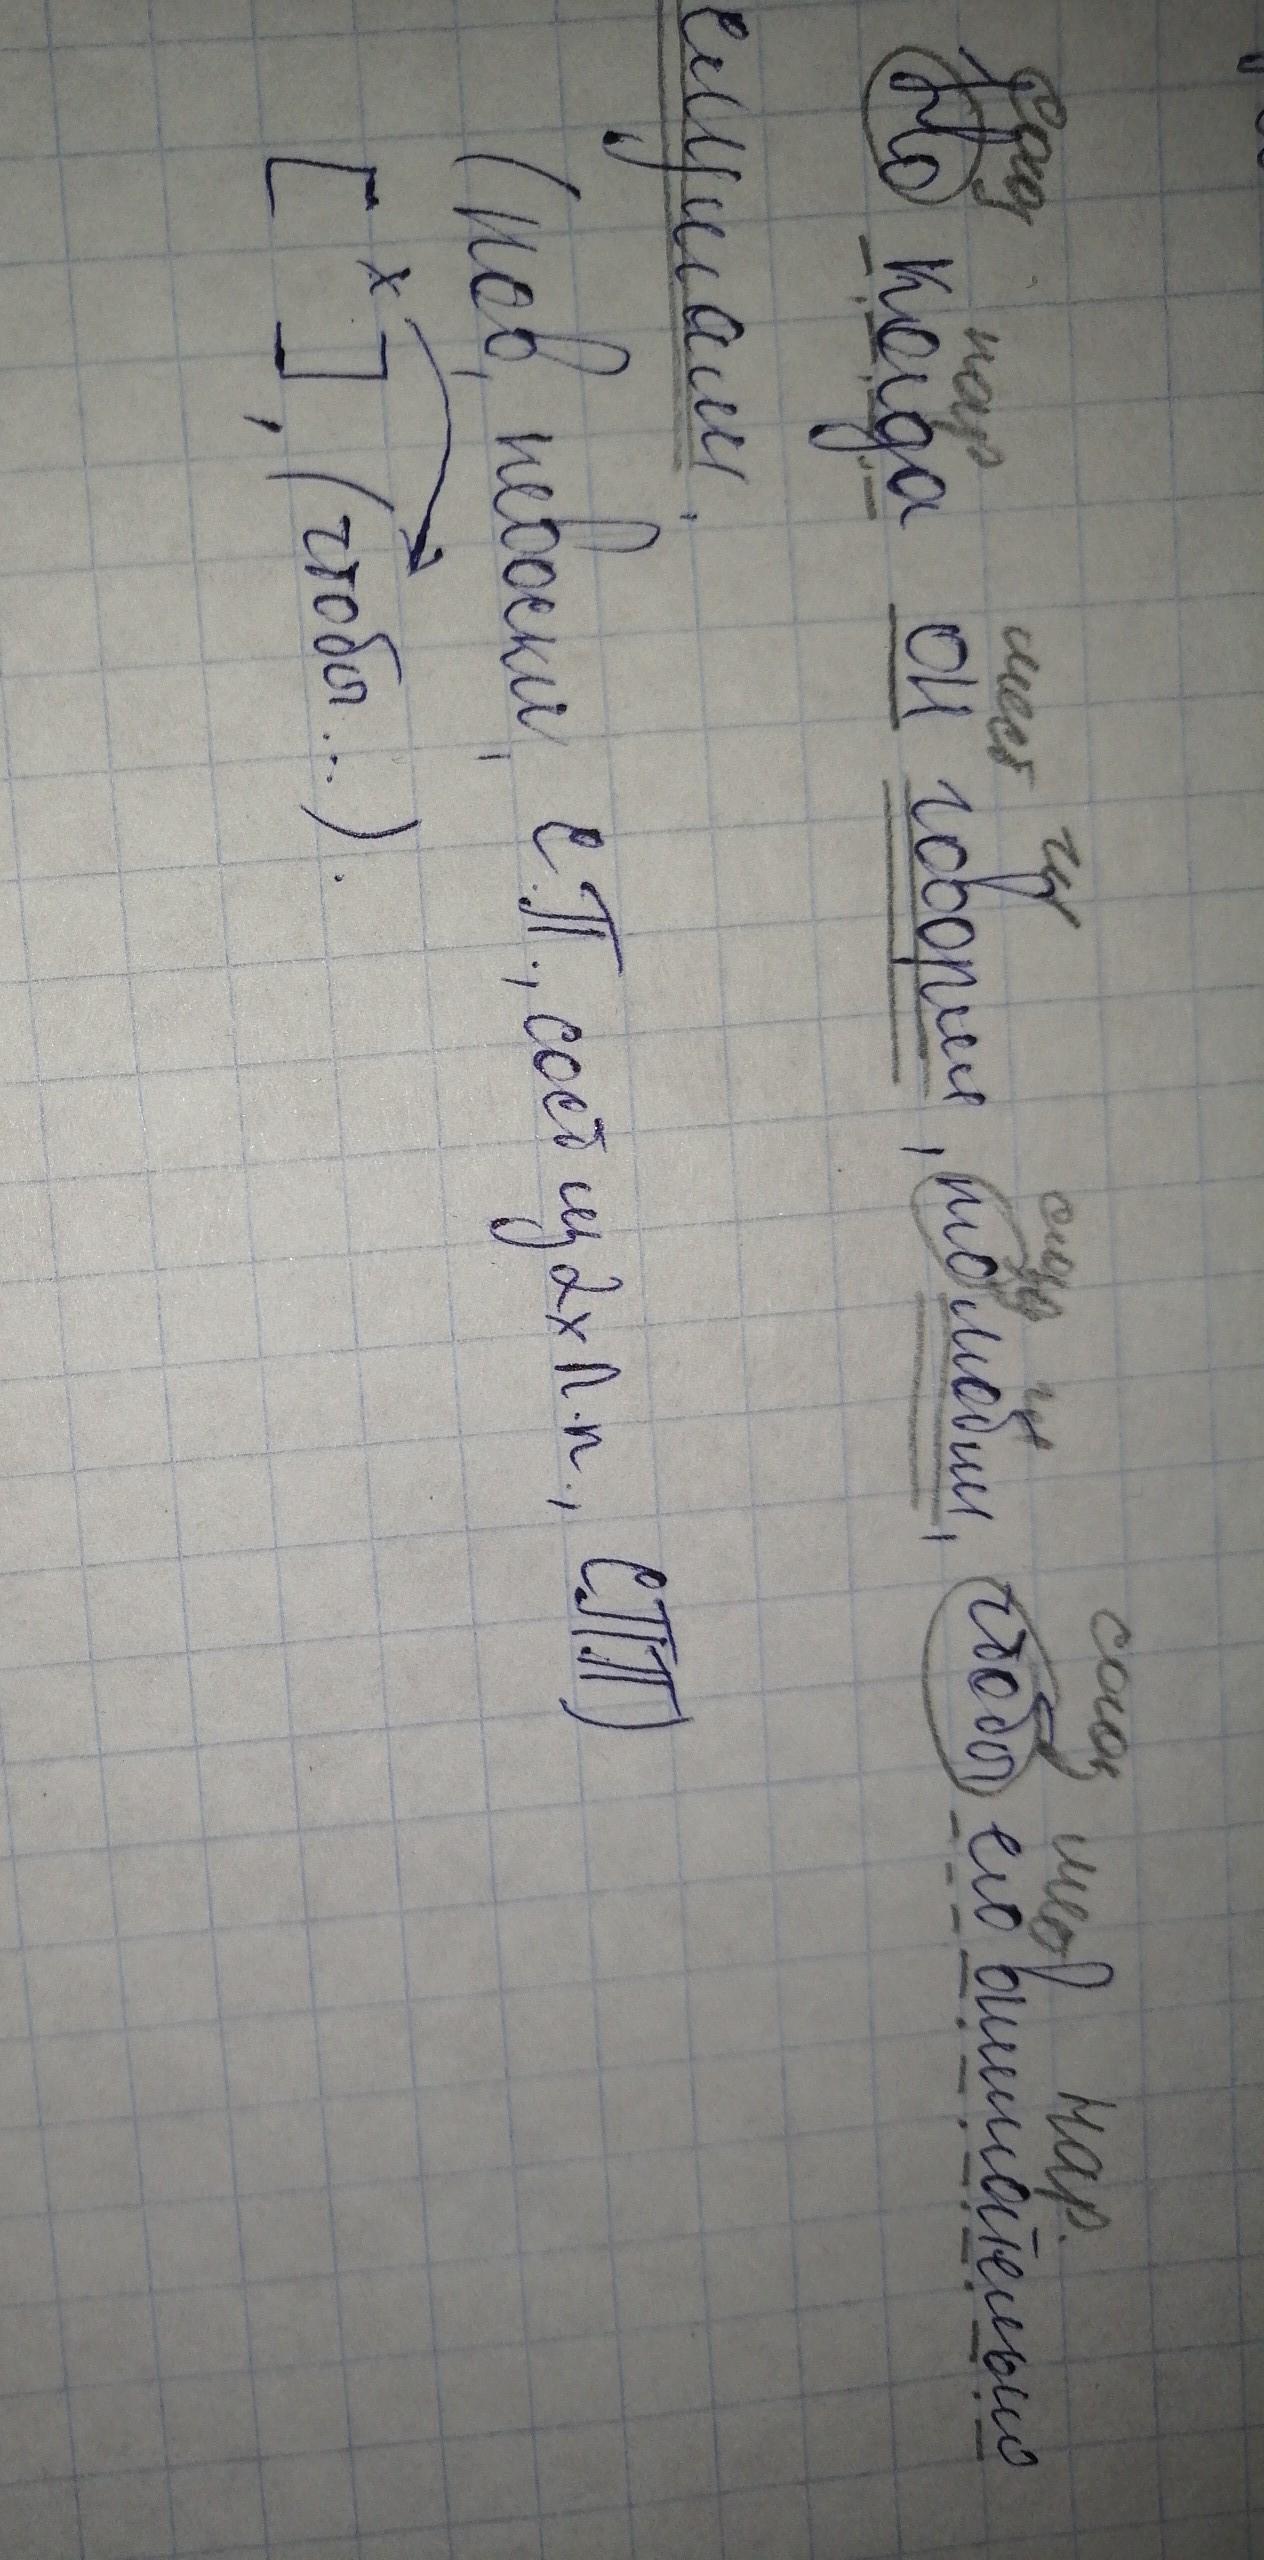 союз нар мест гл союз гл союз мест нар.
Но когда он говорил, то любил, чтобы его внимательно
слушали.
(пов, невоскл, СП., сост из 2х п.п., СПП)
[ х ], (чтобы...).